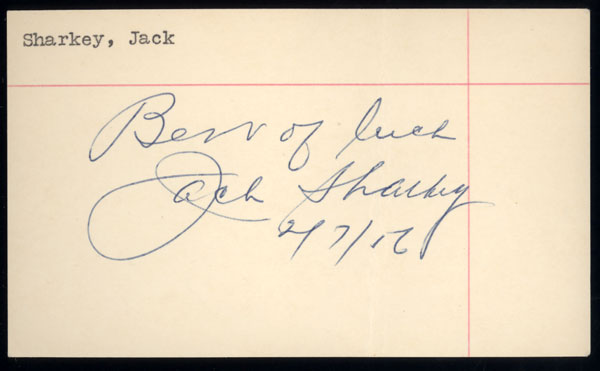 Sharkey, Jack
Best of luck
Jack Sharkey